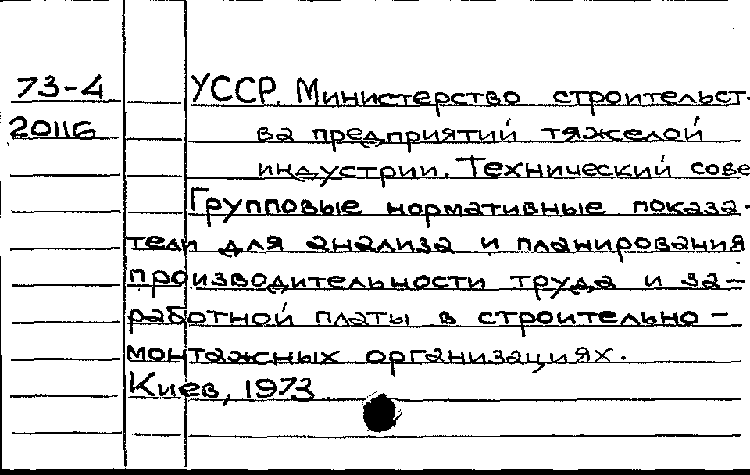 73-4 УССР. Министерство строительст-
20116 ва предприятий тяжелой
индустрии. Технический сове
Групповые нормативные показа-
тели для анализа и планирования
производительности труда и за-
работной платы в строительно-
монтажных организациях.
Киев, 1973